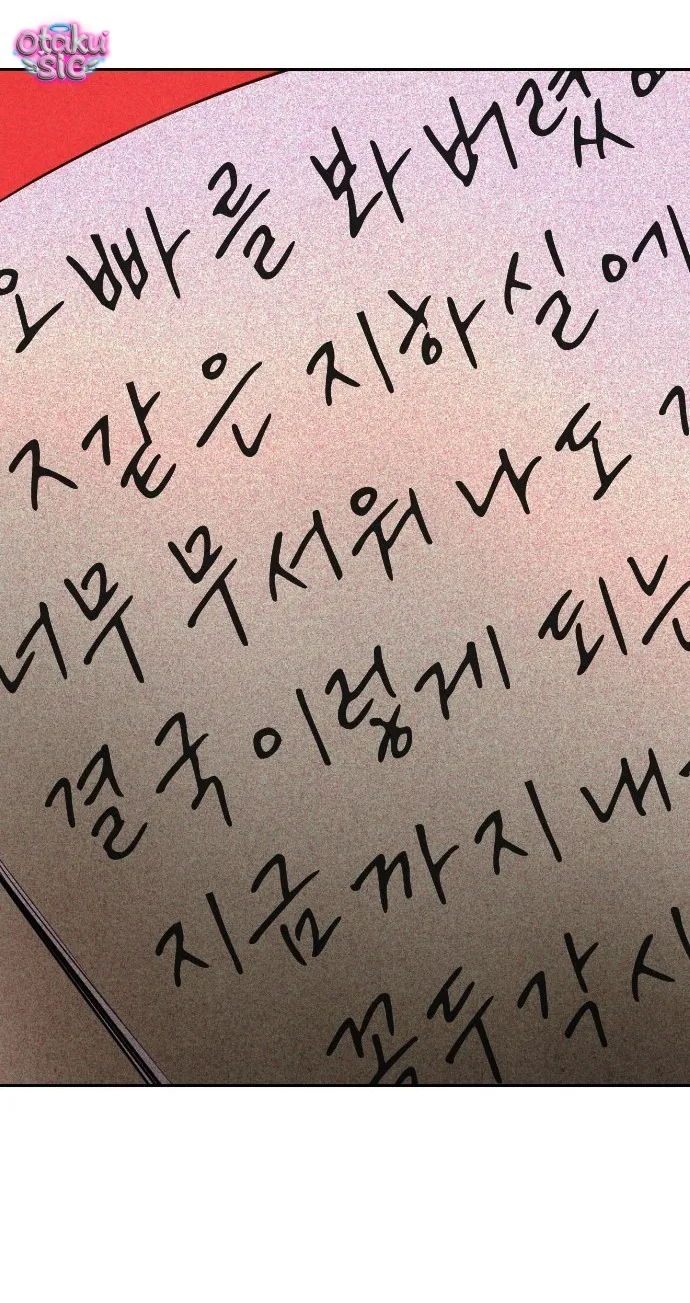 Otaku
SIC
오빠를 봐 버렸
갇은 지하실에
너무 무서워 나도
결국 이렇게 되는
지금까지 내
꼭두각시